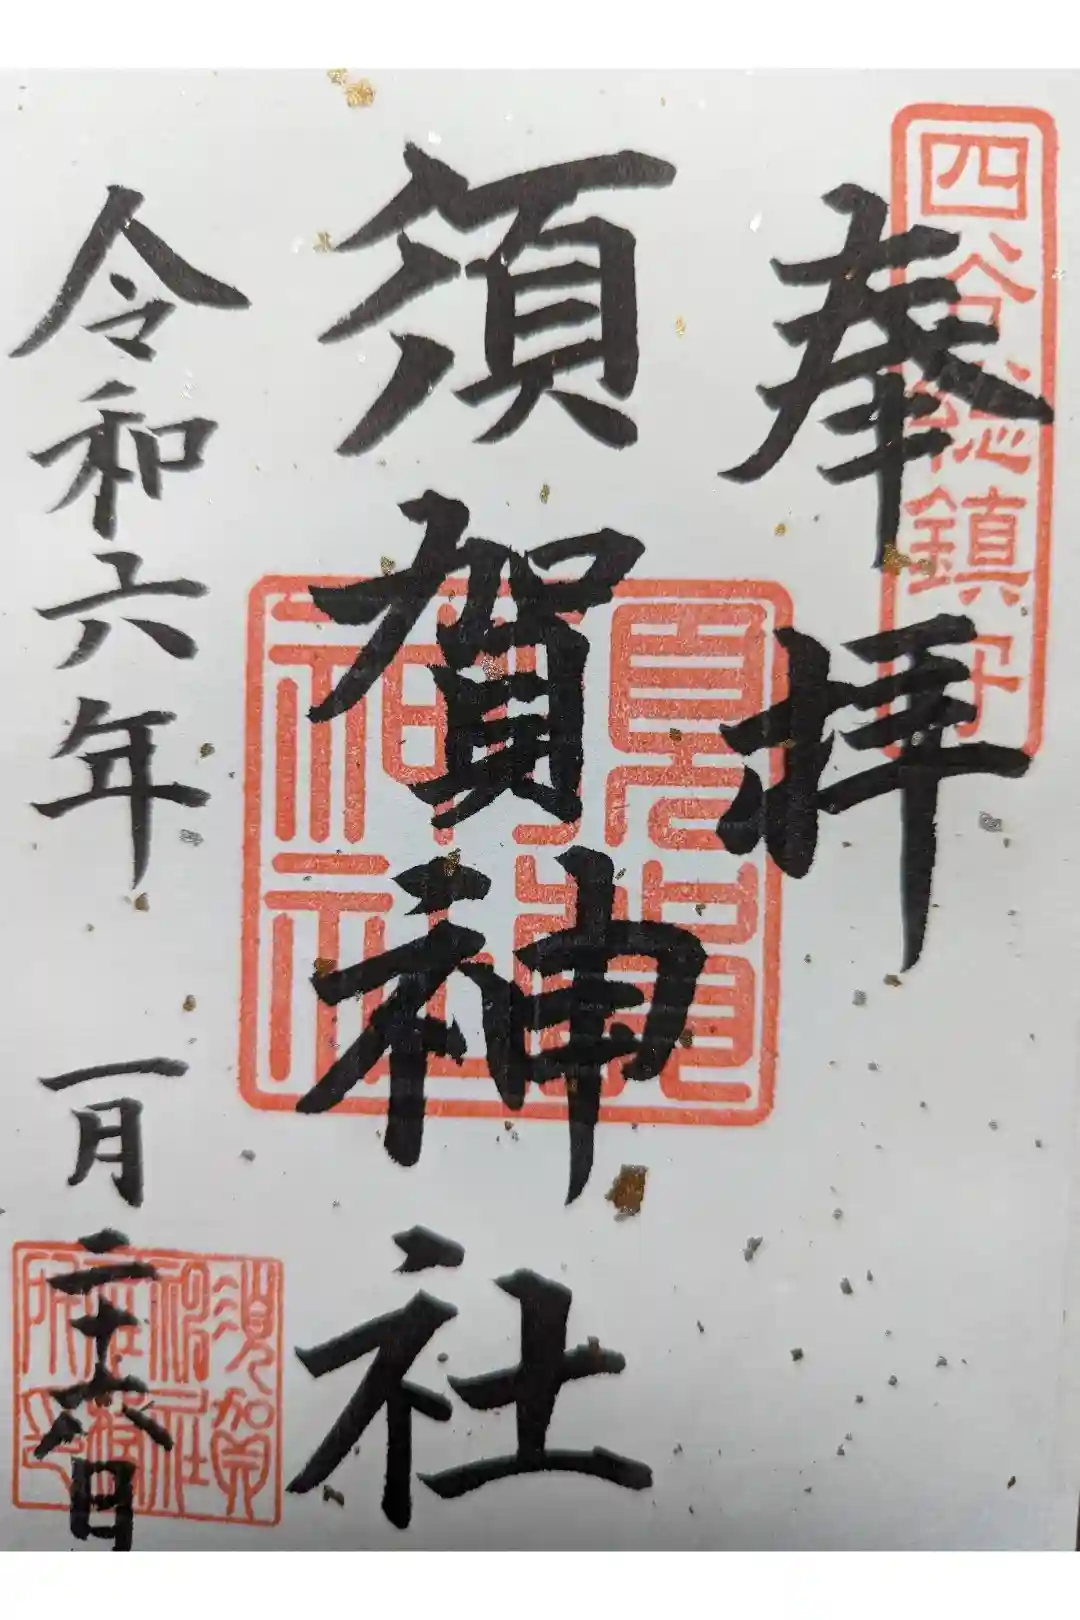 四谷總鎮守
奉拝
須賀神社
須賀神社
令和六年 一月二十六日
須賀神社社務所印